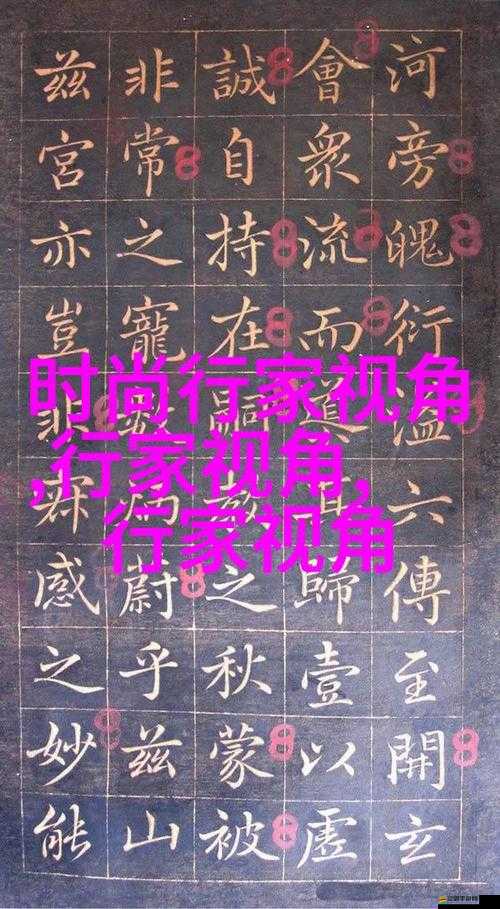 时尚行家视角
,行家视角,
行家视角
河旁魄衍溢六傳至開玄
會眾流而道歸壹以虛
誠自持在嗣之秋蒙被
非常之寵數蔚乎茲山
茲宮亦豈非感之妙能